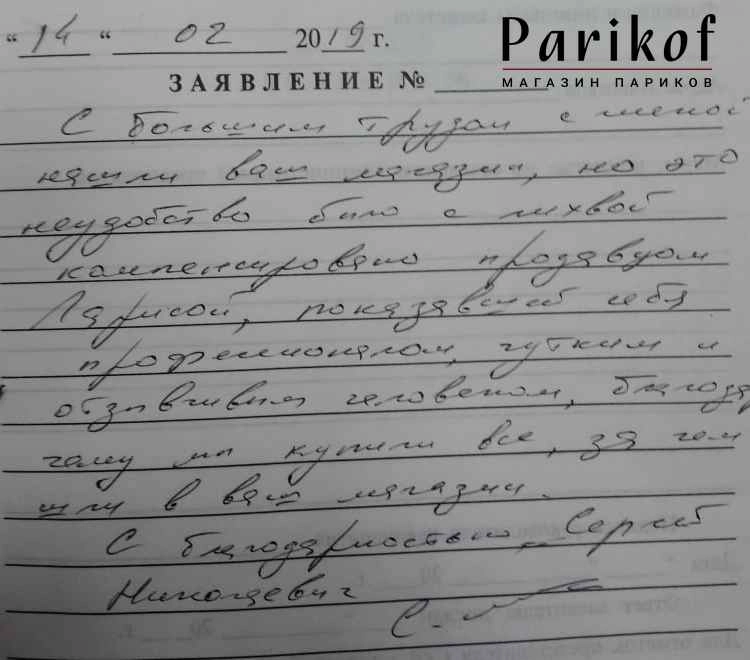 Parikof
МАГАЗИН ПАРИКОВ
“ 14 “ 02 2019 г.
ЗАЯВЛЕНИЕ №
С большим трудом с женой
нашли ваш магазин, но это
неудобство было с лихвой
компенсировано продавцом
Ларисой, показавшей себя
профессионалом, чутким и
отзывчивым человеком, благода
чему мы купили все, за чем
шли в ваш магазин.
С благодарностью Сергей
Николаевич